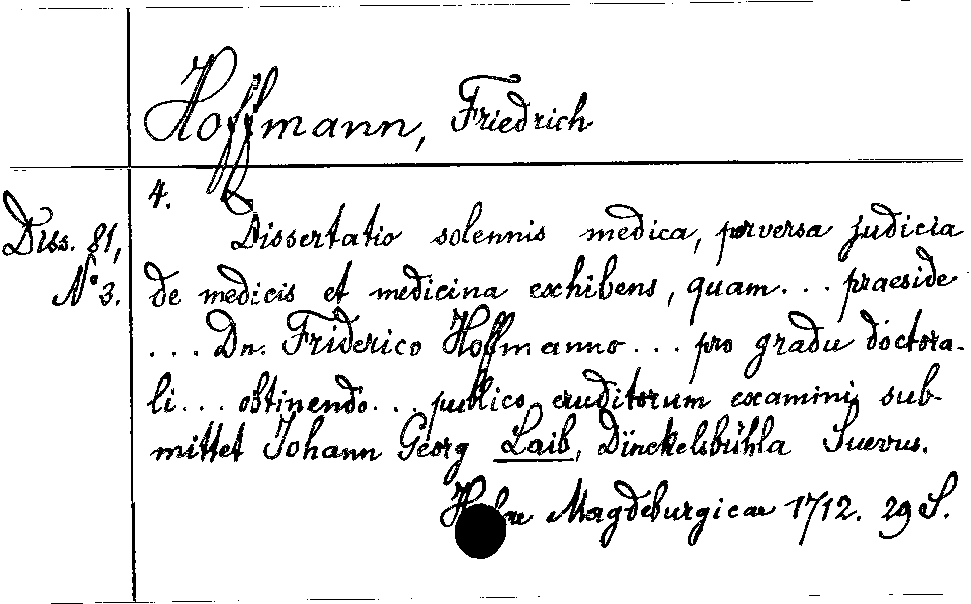 Hoffmann, Friedrich
Diss. 81,
N° 3.
4.
Dissertatio solennis medica, perversa judicia
de medicis et medicina exhibens, quam... praeside
... Dn. Friderico Hoffmanno... pro gradu doctora-
li... obtinendo... publico eruditorum examini sub-
mittet Johann Georg Laib, Dinckelsbühla Suevus.
Magdeburgicae 1712. 29 S.